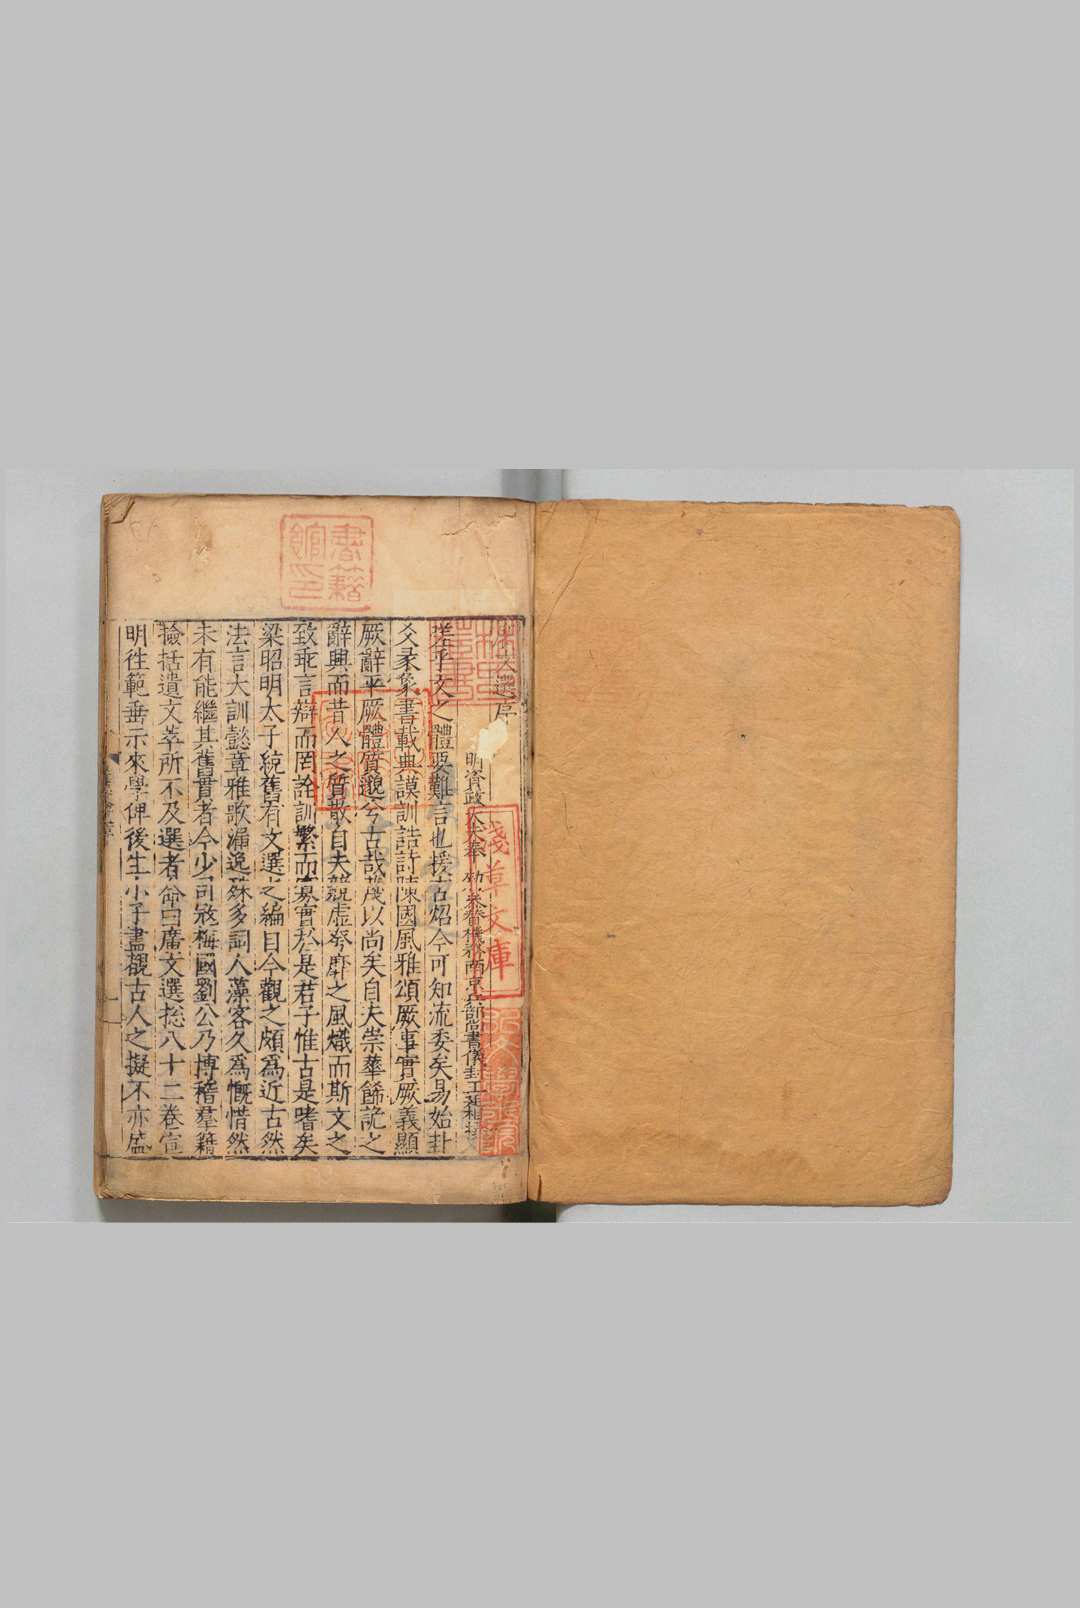 文選序
明資政大夫奉 勑參贊機務南京兵部尚書儀封王廷相
嗟乎文之體要難言也援古炤今可知流委矣易始卦
爻彖象書載典謨訓誥詩陳國風雅頌厥事實厥義顯
厥辭平厥體質邈兮古哉蔑以尚矣自夫崇華飾詭之
辭興而昔人之質散自夫競虛夸靡之風熾而斯文之
致乖言辯而罔詮訓繁而寡實於是君子惟古是嗜矣
梁昭明太子統舊有文選之編目今觀之頗為近古然
法言大訓懿章雅歌漏逸殊多詞人藻客久為慨惜然
未有能繼其舊貫者今少司寇梅國劉公乃博稽羣籍
撿括遺文萃所不及選者命曰廣文選總八十二卷宣
明徃範垂示來學俾後生小子盡覩古人之擬不亦盛
書籍館印
淺草文庫